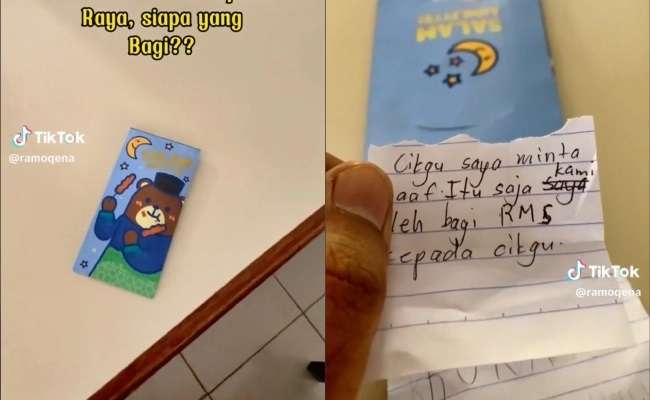 Raya, siapa yang
Bagi??
TikTok
@ramoqena
SALAM
Cikgu saya minta
kami
aaf. Itu saja saya
leh bagi RM5
epada cikgu.
TikTok
@ramoqena